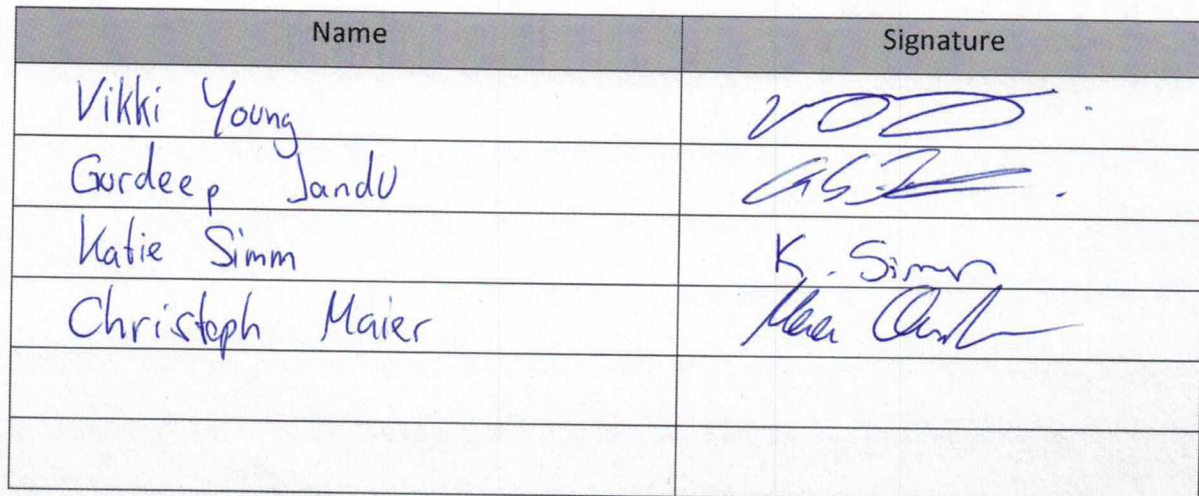 Name Signature
Vikki Young
Gurdeep Jandu
Katie Simm K. Simm
Christoph Maier